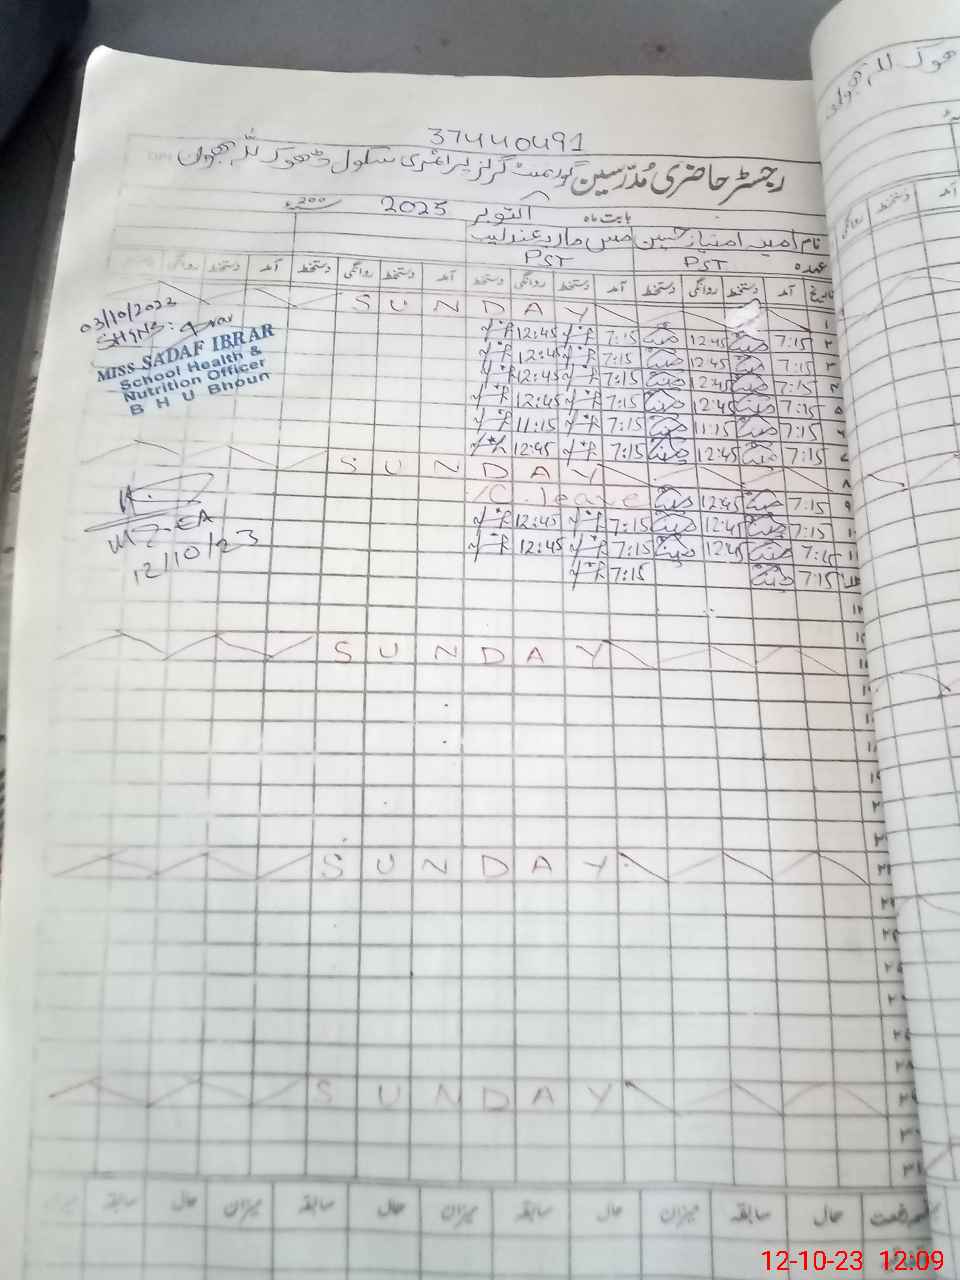 37440491
رجسٹر حاضری مُدرّسین گورنمنٹ گرلز پرائمری سکول ڈھوک للہ بھون
بابت ماہ اکتوبر 2023 ۲۰۰ء
نام امیر امتیاز حسین مس ماریہ عندلیب
عہدہ PST PST
تاریخ آمد دستخط روانگی دستخط آمد دستخط روانگی دستخط آمد دستخط روانگی دستخط آمد دستخط روانگی
۱ SUNDAY
۲ 7:15 12:45 7:15 12:45
۳ 7:15 12:45 7:15 12:45
۴ 7:15 12:45 7:15 12:45
۵ 7:15 12:45 7:15 12:45
۶ 7:15 11:15 7:15 11:15
۷ 7:15 12:45 7:15 12:45
۸ SUNDAY
۹ 7:15 12:45 C.leave
۱۰ 7:15 12:45 7:15 12:45
۱۱ 7:15 12:45 7:15 12:45
۱۲ 7:15 7:15
۱۳
SUNDAY
SUNDAY
SUNDAY
03/10/2023
SH&NS:
MISS SADAF IBRAR
School Health &
Nutrition Officer
B H U Bhoun
MEA
12/10/23
رخصت حال سابقہ میزان حال سابقہ میزان حال سابقہ میزان حال سابقہ
12-10-23 12:09